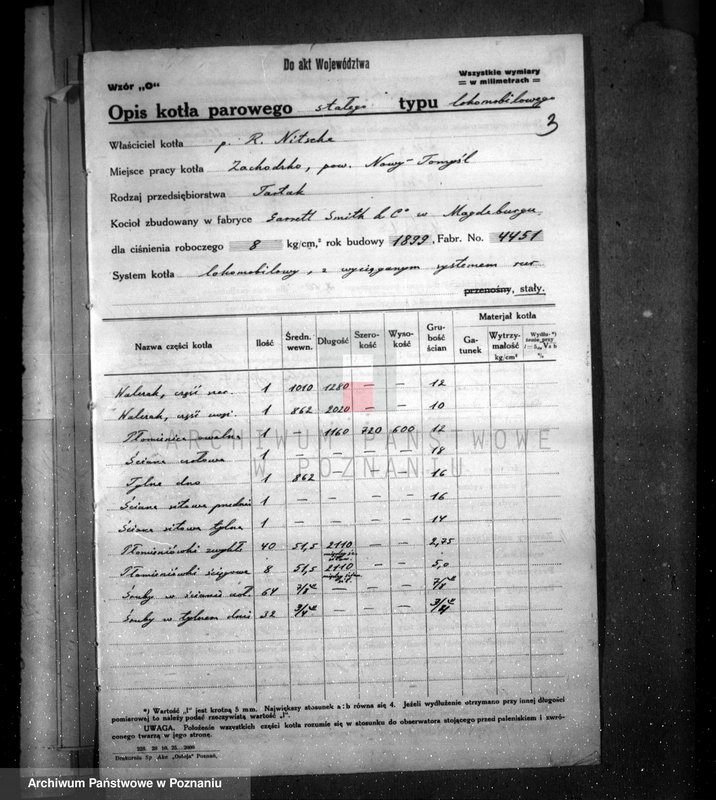 Do akt Województwa
Wzór „O“
Wszystkie wymiary
= w milimetrach =
Opis kotła parowego stałego typu lokomobilowego
3
Właściciel kotła p. R. Nitsche
Miejsce pracy kotła Zachodzko, pow. Nowy-Tomyśl
Rodzaj przedsiębiorstwa Tartak
Kocioł zbudowany w fabryce Garrett Smith & Co w Magdeburgu
dla ciśnienia roboczego 8 kg/cm,² rok budowy 1899. Fabr. No. 4451
System kotła lokomobilowy, z wyciąganym systemem rur
przenośny, stały.
Nazwa części kotła Ilość Średn. wewn. Długość Szerokość Wysokość Grubość ścian Materjał kotła
Gatunek Wytrzymałość kg/cm² Wydłu-*) żenie przy %
Walczak, część 1 1010 1280 — — 12
Walczak, część 1 862 2020 — — 10
Płomienica owalna 1 — 1160 720 600 12
Ściana czołowa 1 — — — — 18
Tylne dno 1 862 — — — 16
Ściana sitowa przednia 1 — — — — 16
Ściana sitowa tylna 1 — — — — 14
Płomieniówki zwykłe 40 51,5 2110 — — 2,75
Płomieniówki ściągowe 8 51,5 2110 — — 5,0
Śruby w ścianie 64 7/8" — — — 7/8"
Śruby w tylnem dnie 32 3/4" — — — 3/4"
ARCHIWUM PAŃSTWOWE
W POZNANIU
*) Wartość „l“ jest krotną 5 mm. Największy stosunek a : b równa się 4. Jeżeli wydłużenie otrzymano przy innej długości
pomiarowej to należy podać rzeczywistą wartość „l“.
UWAGA. Położenie wszystkich części kotła rozumie się w stosunku do obserwatora stojącego przed paleniskiem i zwró-
conego twarzą w jego stronę.
25. 2000
Drukarnia Sp. Akc. „Ostoja“ Poznań.
Archiwum Państwowe w Poznaniu